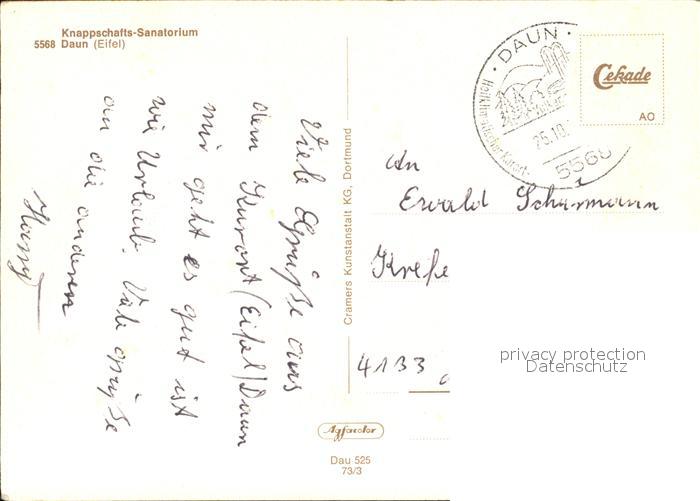 Knappschafts-Sanatorium
5568 Daun (Eifel)
Viele Grüße aus
dem Kurort (Eifel) Daun
mir geht es gut ist
wie Urlaub. Viele grüße
an die anderen
Cramers Kunstanstalt KG, Dortmund
· DAUN ·
Heilklimatischer Kurort
25.10.
5568
Cekade
AO
An
Erwald Schürmann
Krefe
4133
privacy protection
Datenschutz
Agfacolor
Dau 525
73/3